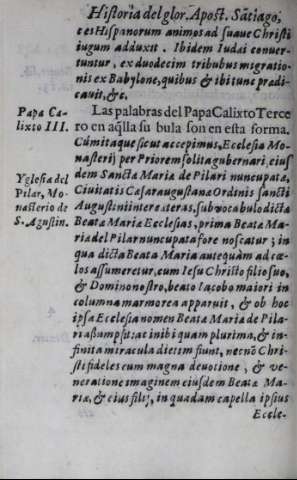 Historia del glor. Apost. Sãtiago,
ces Hispanorum animos ad suaue Christi
iugum adduxit. Ibidem Iudai conuer-
tuntur, ex duodecim tribubus migratio-
nis ex Babylone, quibus & ibi tunc prædi-
cauit, &c.
Papa Ca-
lixto III.
Las palabras del Papa Calixto Terce
ro en aq̃lla su bula son en esta forma.
Cùm itaque sicut accepimus, Ecclesia Mo-
nasterij per Priorem solita gubernari, eius
dem Sancta Maria de Pilari nuncupata,
Yglesia del
Pilar, Mo-
nasterio de
S. Agustin.
Ciuitatis Casaraugustana Ordinis sancti
Augustini inter cæteras, sub vocabulo dicta
Beata Maria Ecclesias, prima Beata Ma-
ria del Pilar nuncupata fore noscatur; in
qua dicta Beata Maria antequàm ad cæ-
los assumeretur, cum Iesu Christo filio suo,
& Domino nostro, beato Iacobo maiori in
columna marmorea apparuit, & ob hoc
ipsa Ecclesia nomen Beata Maria de Pila-
ri assumpsit: ac inibi quam plurima, & in-
finita miracula dietim fiunt, necnõ Chri-
sti fideles cum magna deuotione, & ve-
neratione imaginem eiusdem Beata Ma-
riæ, & eius filij, in quadam capella ipsius
Eccle-